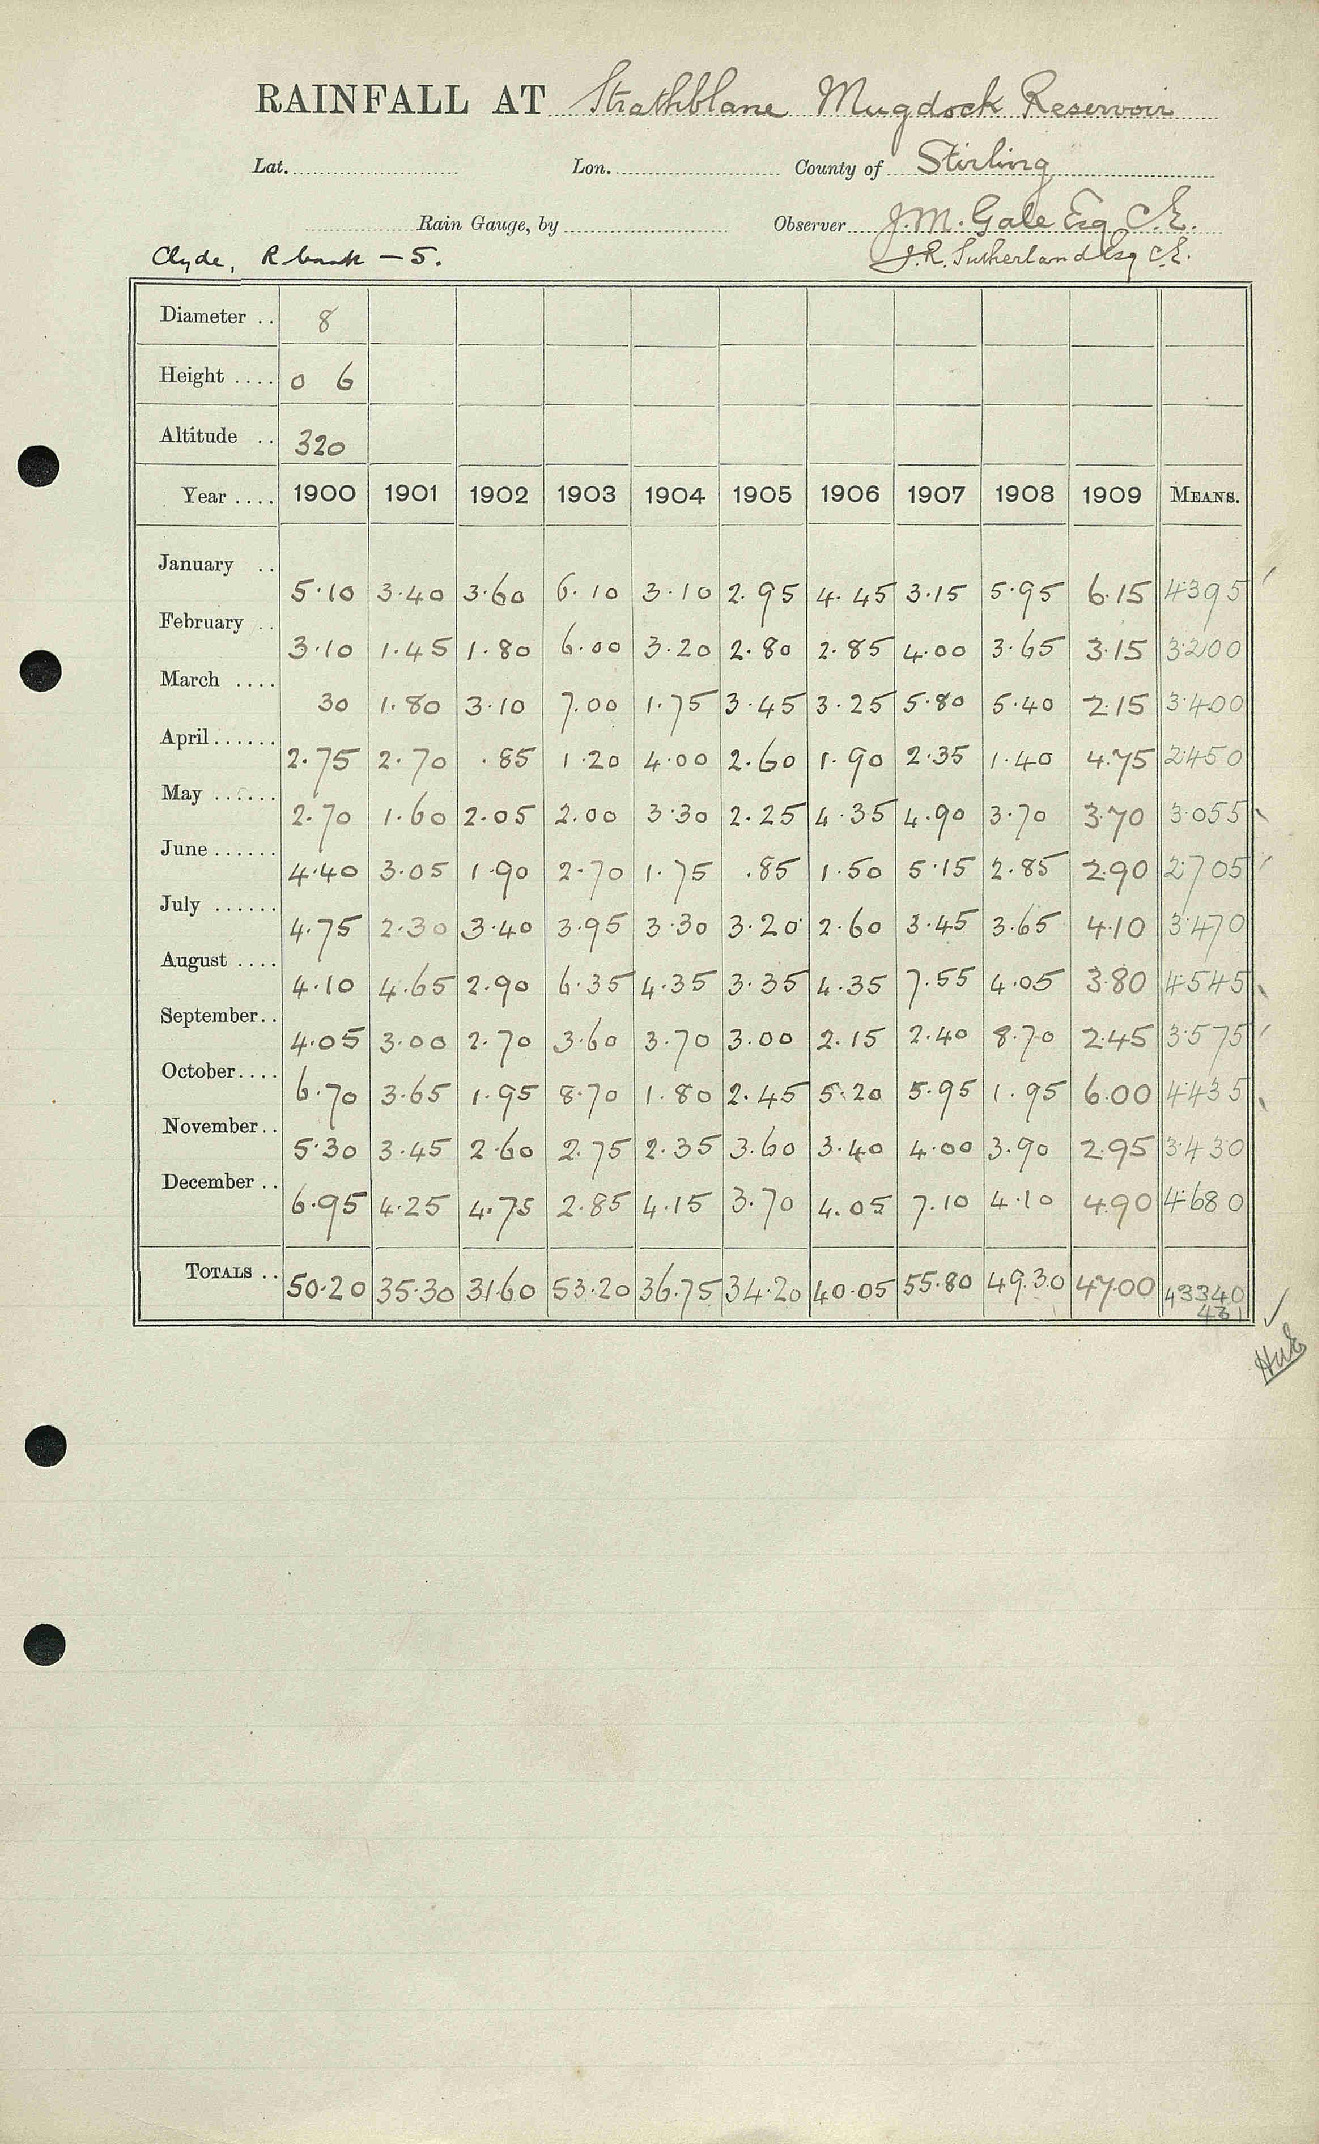 RAINFALL AT Strathblane Mugdock Reservoir
Lat. Lon. County of Stirling
Rain Gauge, by Observer J.M. Gale Esq C.E.
Clyde, R bank – 5. J.R. Sutherland Esq C.E.
Diameter .. 8
Height .... 0 6
Altitude .. 320
Year .... 1900 1901 1902 1903 1904 1905 1906 1907 1908 1909 MEANS.
January .. 5.10 3.40 3.60 6.10 3.10 2.95 4.45 3.15 5.95 6.15 4395
February .. 3.10 1.45 1.80 6.00 3.20 2.80 2.85 4.00 3.65 3.15 3200
March .... 30 1.80 3.10 7.00 1.75 3.45 3.25 5.80 5.40 2.15 3.400
April ...... 2.75 2.70 .85 1.20 4.00 2.60 1.90 2.35 1.40 4.75 2450
May ...... 2.70 1.60 2.05 2.00 3.30 2.25 4.35 4.90 3.70 3.70 3.055
June ...... 4.40 3.05 1.90 2.70 1.75 .85 1.50 5.15 2.85 2.90 2.705
July ...... 4.75 2.30 3.40 3.95 3.30 3.20 2.60 3.45 3.65 4.10 3.470
August .... 4.10 4.65 2.90 6.35 4.35 3.35 4.35 7.55 4.05 3.80 4545
September .. 4.05 3.00 2.70 3.60 3.70 3.00 2.15 2.40 8.70 2.45 3.575
October .... 6.70 3.65 1.95 8.70 1.80 2.45 5.20 5.95 1.95 6.00 4435
November .. 5.30 3.45 2.60 2.75 2.35 3.60 3.40 4.00 3.90 2.95 3430
December .. 6.95 4.25 4.75 2.85 4.15 3.70 4.05 7.10 4.10 4.90 4.680
TOTALS .. 50.20 35.30 31.60 53.20 36.75 34.20 40.05 55.80 49.30 47.00 43340